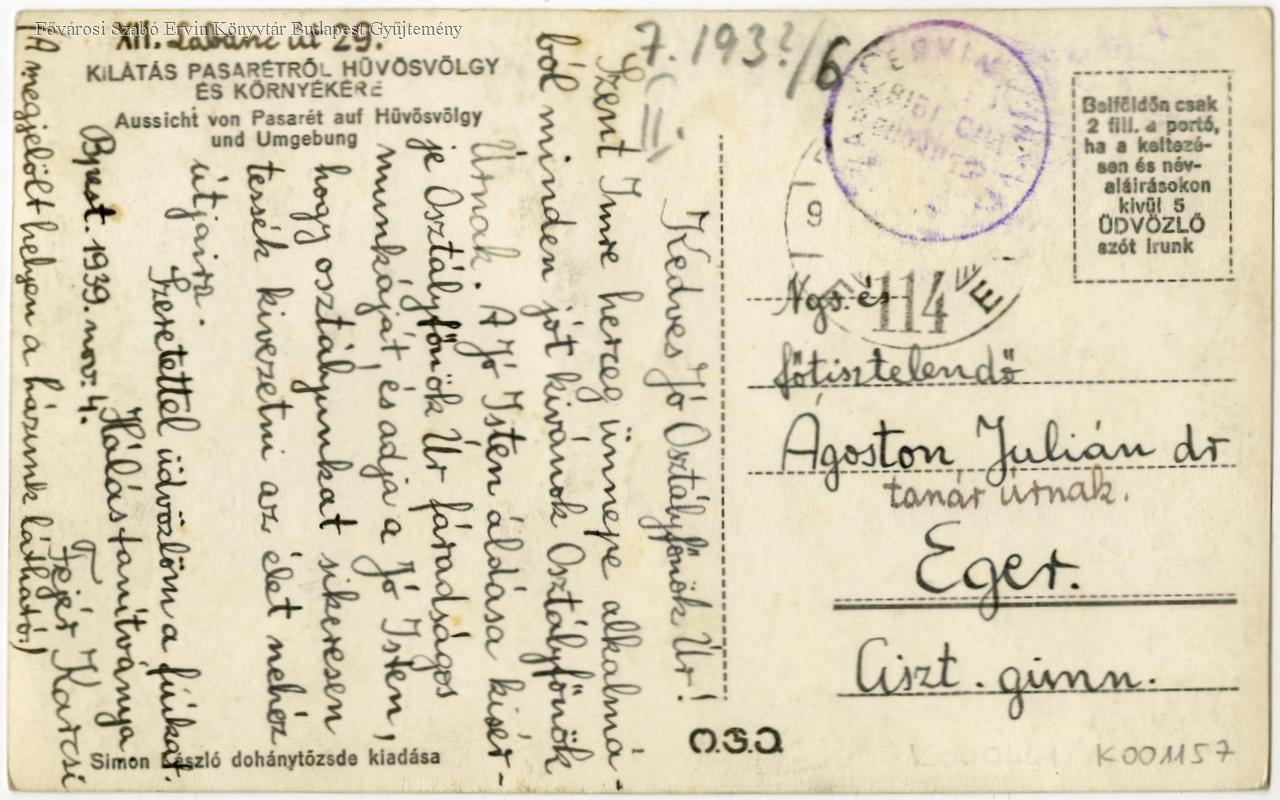 Fővárosi Szabó Ervin Könyvtár Budapest Gyűjtemény
XII. Labanc út 29.
KILÁTÁS PASARÉTRŐL HŰVÖSVÖLGY
ÉS KÖRNYÉKÉRE
Aussicht von Pasarét auf Hűvösvölgy
und Umgebung
7. 193?/6
II.
Kedves Jó Osztályfőnök Úr!
Szent Imre herceg ünnepe alkalmá-
ból minden jót kivánok Osztályfőnök
Úrnak. A Jó Isten áldása kisér-
je Osztályfőnök Úr fáradságos
munkáját, és adja a Jó Isten,
hogy osztályunkat sikeresen
tessék kivezetni az élet nehéz
útjaira.
Szeretettel üdvözlöm a fiúkat.
Hálás tanítványa
Fejér Karcsi
Bpest. 1939. nov. 4.
(A megjelölt helyen a házunk látható!)
Simon László dohánytőzsde kiadása
Belföldön csak
2 fill. a portó,
ha a keltezé-
sen és név-
aláírásokon
kivül 5
ÜDVÖZLŐ
szót irunk
9
114
E
Ngs. és
főtisztelendő
Ágoston Julián dr
tanár úrnak.
Eger.
Ciszt. gimn.
O.S.O.
K001157